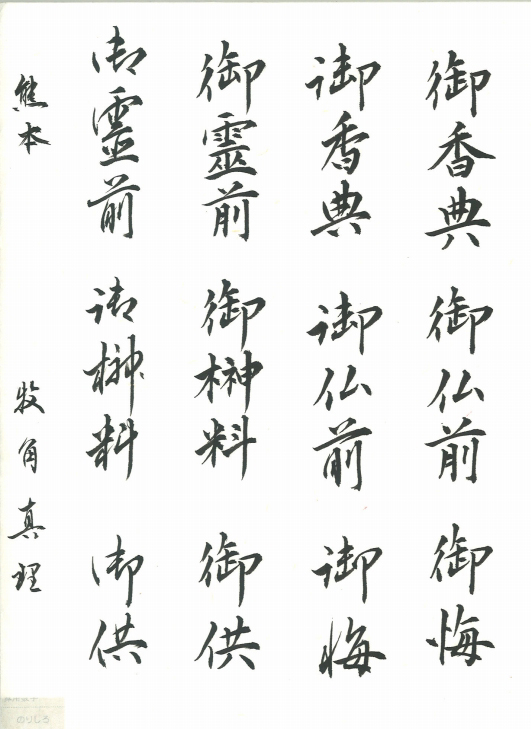 御香典
御仏前
御悔
御香典
御仏前
御悔
御霊前
御榊料
御供
御霊前
御榊料
御供
熊本
牧角真理
のりしろ